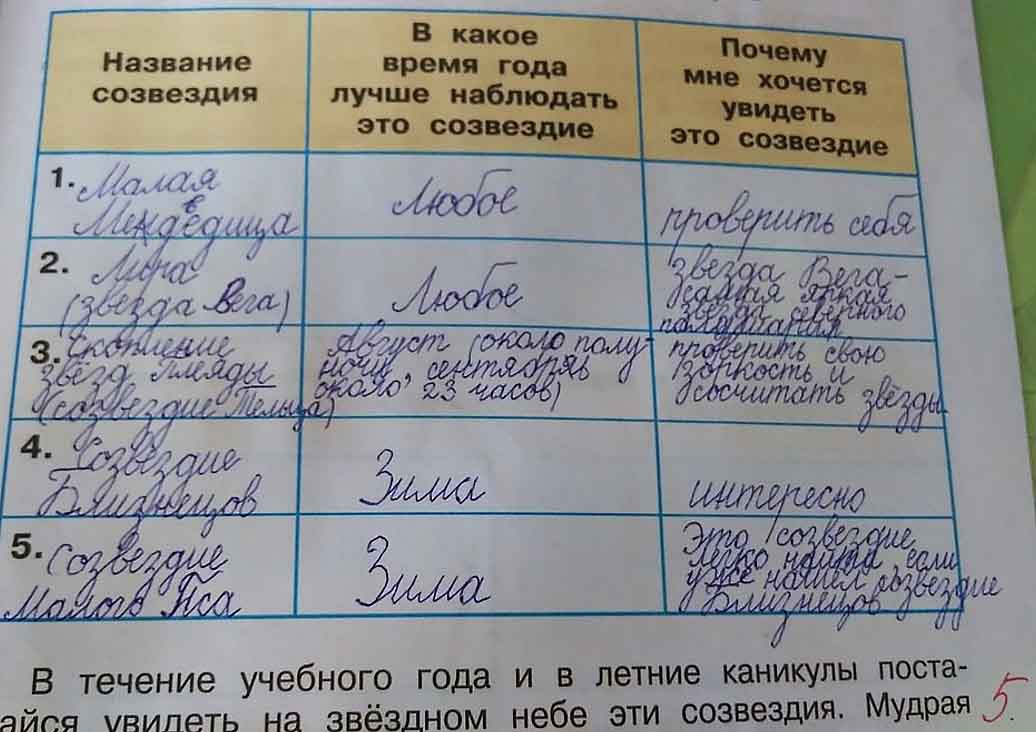 Название
созвездия
В какое
время года
лучше наблюдать
это созвездие
Почему
мне хочется
увидеть
это созвездие
1. Малая
Медведица
Любое
проверить себя
2. Лира
(звезда Вега)
Любое
звезда Вега-
самая яркая
звезда северного
полушария
3. Скопление
звёзд Плеяды
(созвездие Тельца)
Август (около полу-
ночи, сентябрь
около 23 часов)
проверить свою
зоркость и
сосчитать звёзды
4. Созвездие
Близнецов
Зима
интересно
5. Созвездие
Малого Пса
Зима
Это созвездие
легко найти, если
уже нашёл созвездие
Близнецов
В течение учебного года и в летние каникулы поста-
айся увидеть на звёздном небе эти созвездия. Мудрая
5.